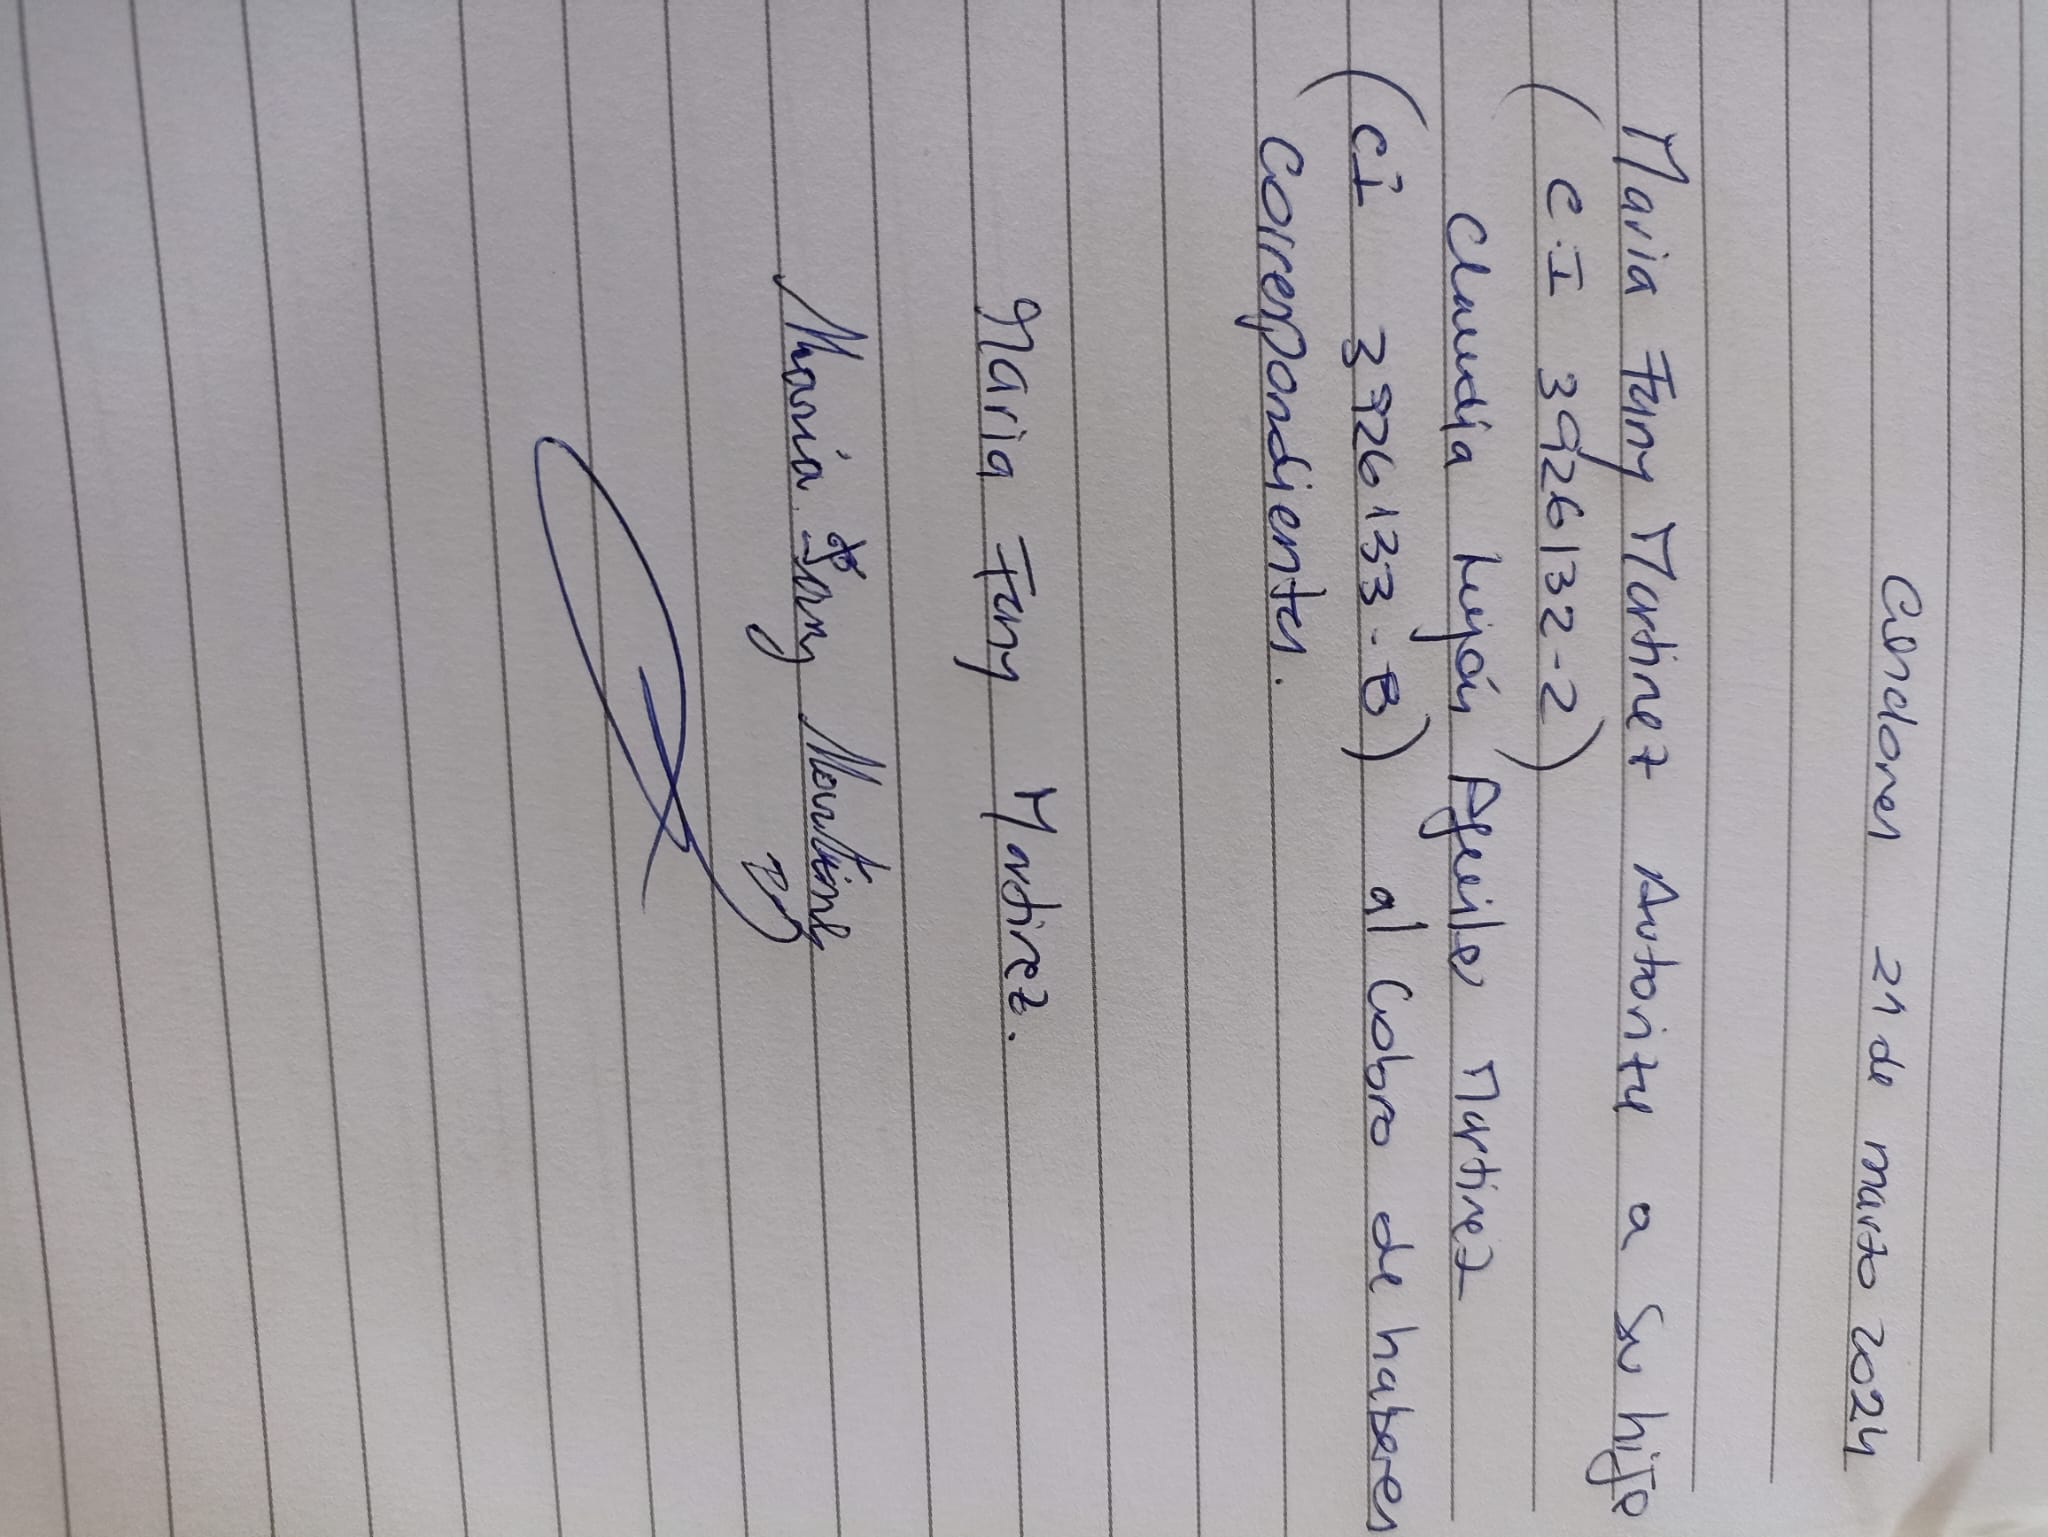 Cendones 21 de marzo 2024
Maria Fany Martinez Autoriza a su hija
( C.I 3926132-2)
Claudia Luján Aguilar Martinez
(CI 3926133-8) al Cobro de haberes
correspondientes.
Maria Fany Martinez.
María Fany Martínez